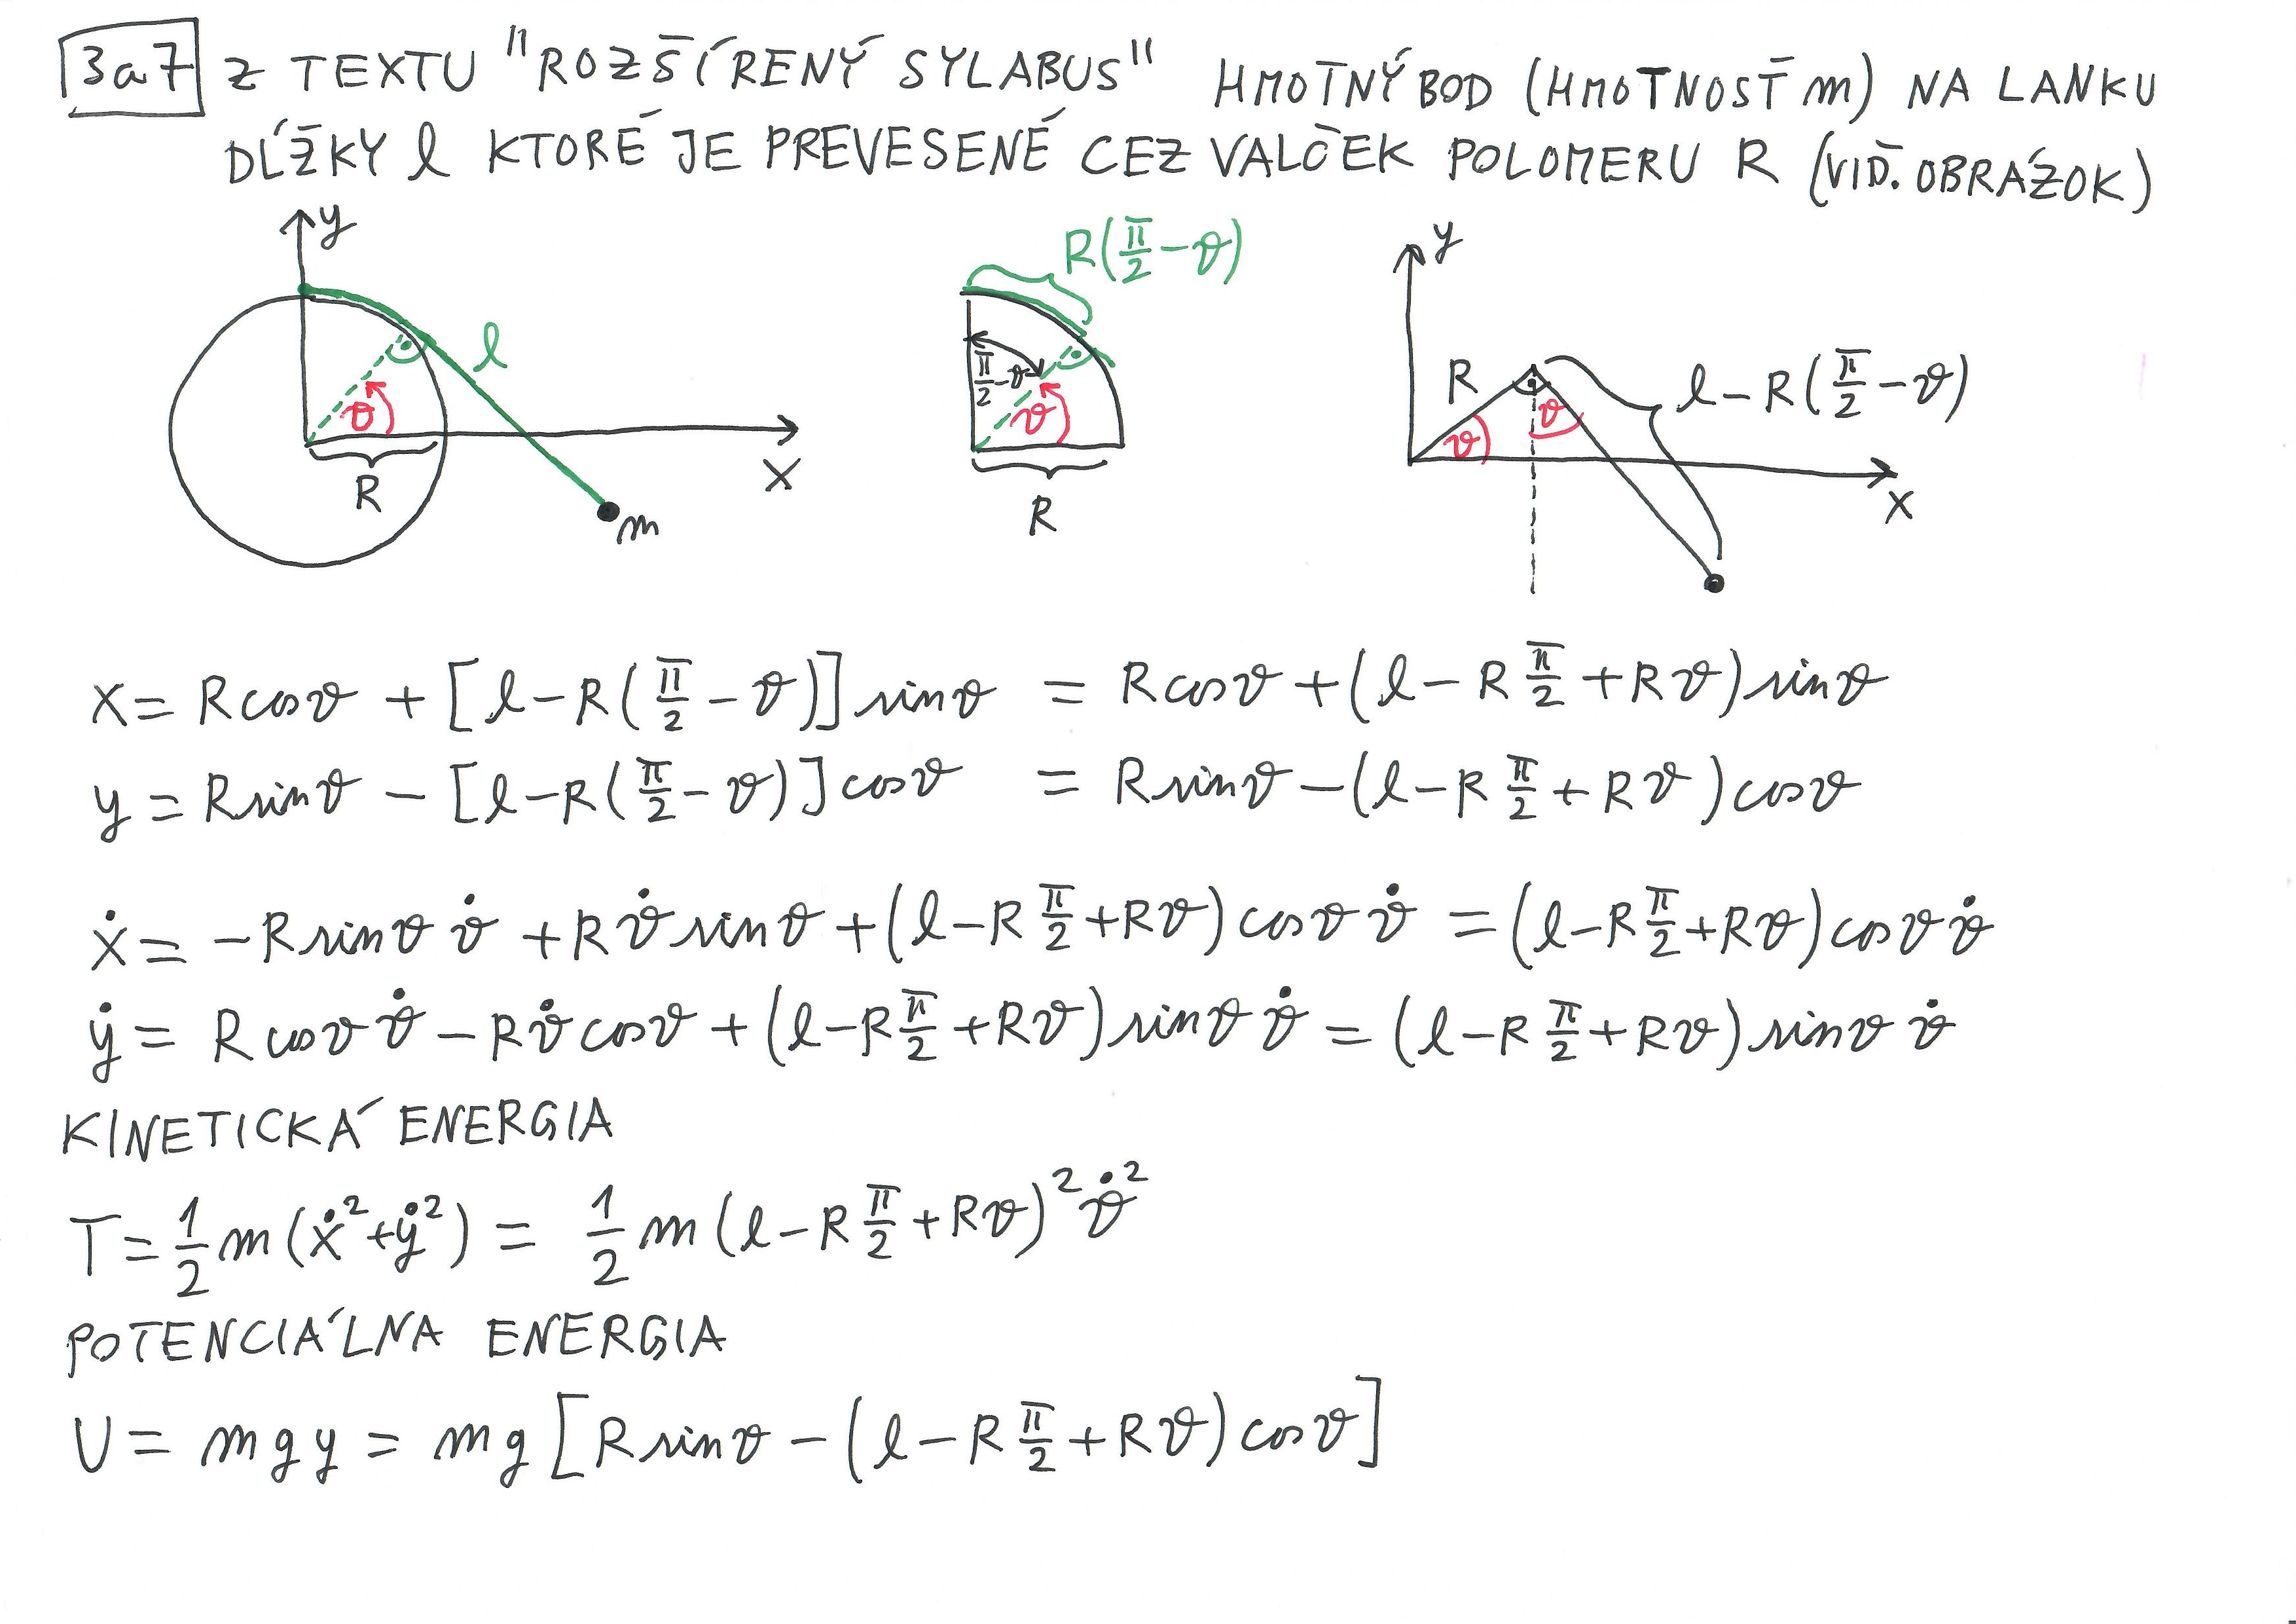 3a7 Z TEXTU "ROZŠÍRENÝ SYLABUS" HMOTNÝ BOD (HMOTNOSŤ m) NA LANKU
DĹŽKY l KTORÉ JE PREVESENÉ CEZ VALČEK POLOMERU R (VIĎ. OBRÁZOK)
y
l
ϑ
R
x
m
R(π/2 − ϑ)
π/2 − ϑ
ϑ
R
y
R
ϑ
ϑ
l − R(π/2 − ϑ)
x
x = R cosϑ + [l − R(π/2 − ϑ)] sinϑ = R cosϑ + (l − R π/2 + Rϑ) sinϑ
y = R sinϑ − [l − R(π/2 − ϑ)] cosϑ = R sinϑ − (l − R π/2 + Rϑ) cosϑ
ẋ = −R sinϑ ϑ̇ + R ϑ̇ sinϑ + (l − R π/2 + Rϑ) cosϑ ϑ̇ = (l − R π/2 + Rϑ) cosϑ ϑ̇
ẏ = R cosϑ ϑ̇ − R ϑ̇ cosϑ + (l − R π/2 + Rϑ) sinϑ ϑ̇ = (l − R π/2 + Rϑ) sinϑ ϑ̇
KINETICKÁ ENERGIA
T = 1/2 m (ẋ² + ẏ²) = 1/2 m (l − R π/2 + Rϑ)² ϑ̇²
POTENCIÁLNA ENERGIA
U = mgy = mg [R sinϑ − (l − R π/2 + Rϑ) cosϑ]